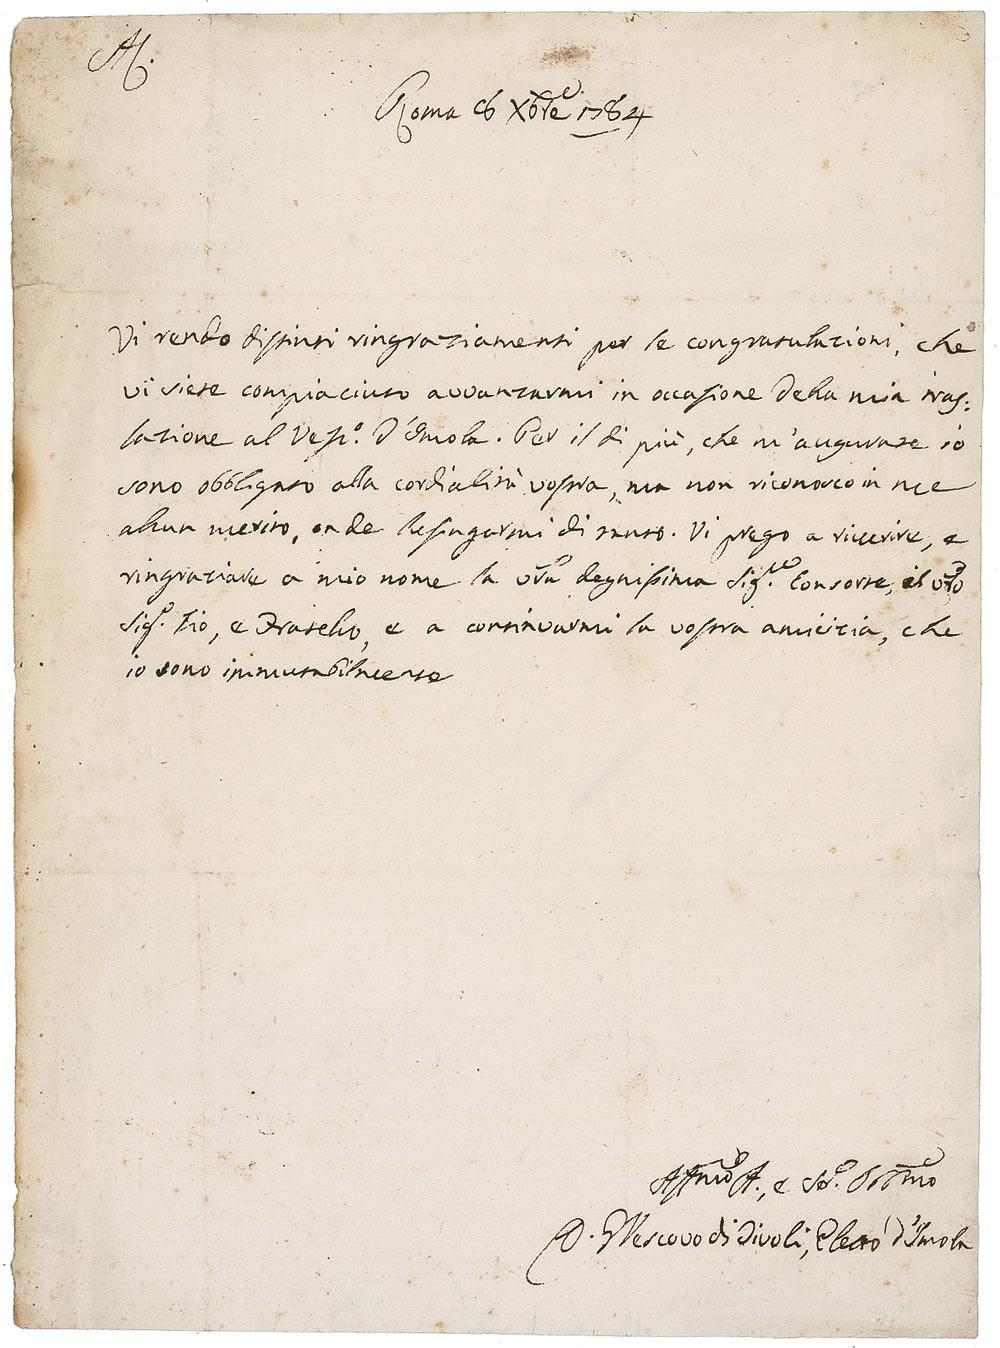 A.
Roma 8 Xbre 1784
Vi rendo distinti ringraziamenti per le congratulazioni, che
vi siete compiaciuto avvanzarmi in occasione della mia tras=
lazione al Vesc.o d'Imola. Per il di più, che m'augurate io
sono obbligato alla cordialità vostra, ma non riconosco in me
alcun merito, onde lusingarmi di tanto. Vi prego a riverire, e
ringraziare a mio nome la vr̃a degnissima Sig.ra Consorte, il vr̃o
Sig.r Zio, e Fratello, e a continuarmi la vostra amicizia, che
io sono immutabilmente
Affmo A., e Ser. Obbmo
D. Vescovo di Tivoli, Eletto d'Imola